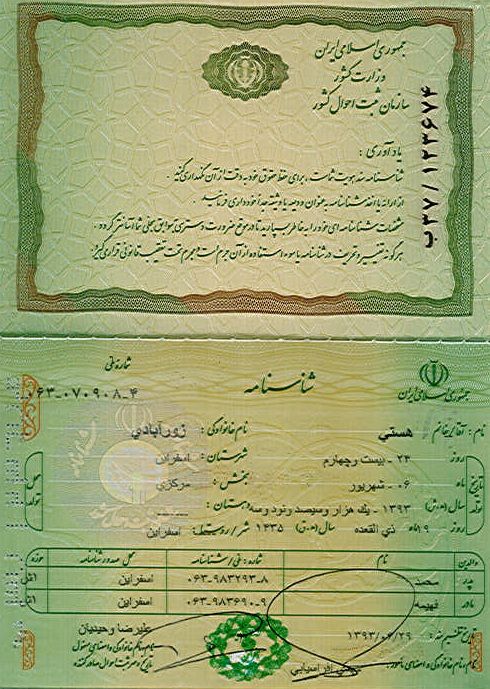 جمهوری اسلامی ایران
وزارت کشور
سازمان ثبت احوال کشور
ب۳۷/۱۲۳۶۷۴
یادآوری :
شناسنامه سند هویت شماست ، برای حفظ حقوق خود به دقت از آن نگهداری کنید .
از ارائه یا اخذ شناسنامه به عنوان ودیعه یا وثیقه جداً خودداری فرمائید .
مشخصات شناسنامه ای خود را به خاطر بسپارید تا در موقع ضرورت دسترسی به سوابق سجلی شما آسانتر گردد .
هرگونه تغییر و تحریف در شناسنامه یا سوء استفاده از آن جرم است و مجرم تحت تعقیب قانونی قرار می گیرد
جمهوری اسلامی ایران
شناسنامه
شماره ملی
۰۶۳-۰۷۰۹۰۸-۴
نام : آقا/خانم هستي نام خانوادگی : زورآبادي
تاریخ تولد
روز ۲۴ - بیست وچهارم
ماه ۰۶ - شهریور
سال (ه.ش) ۱۳۹۳ - یك هزار وسیصد ونود وسه
روز ۲۹ ماه ذي القعده سال (ه.ق) ۱۴۳۵
محل تولد
شهرستان : اسفراین
بخش : مرکزي
دهستان :
شهر/روستا : اسفراین
والدین نام شماره : ملی/شناسنامه محل صدور شناسنامه حوزه
پدر محمد ۰۶۳-۹۸۳۲۹۳-۸ اسفراین
مادر فهیمه ۰۶۳-۹۸۳۶۹۰-۹ اسفراین
تاریخ تنظیم سند : ۱۳۹۳/۰۶/۲۹
نام ، نام خانوادگی و امضای مأمور :
علیرضا وحیدیان
نام ، نام خانوادگی و امضای مسئول